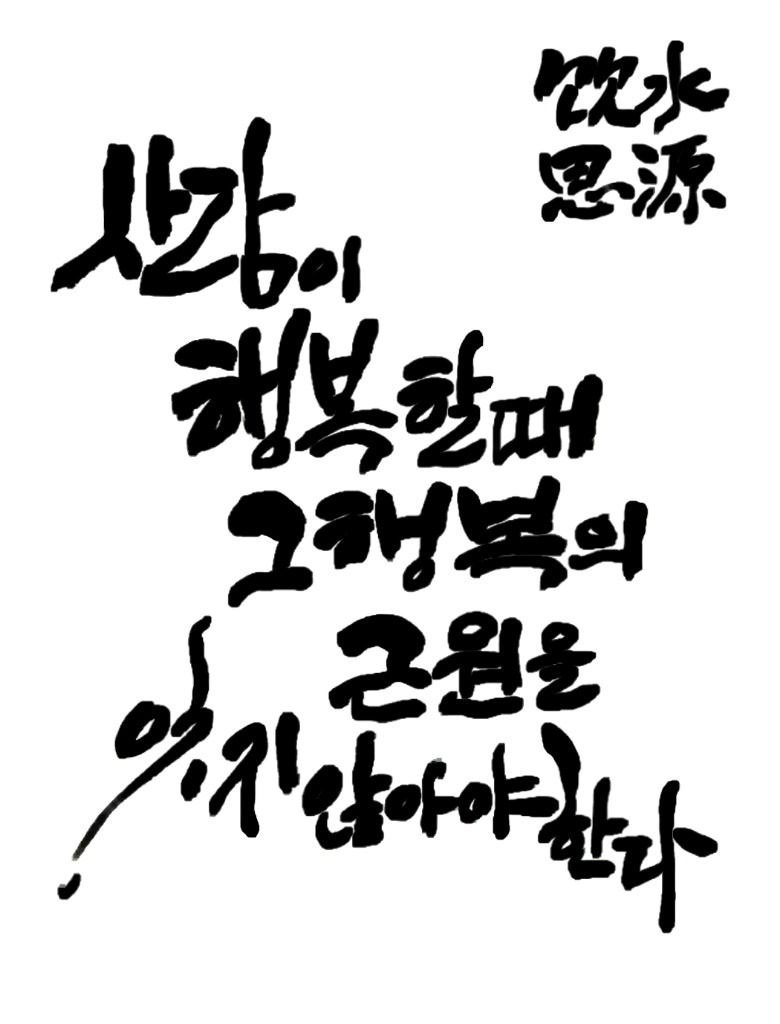 飮水
思源
사람이
행복할때
그행복의
근원을
잊지않아야한다